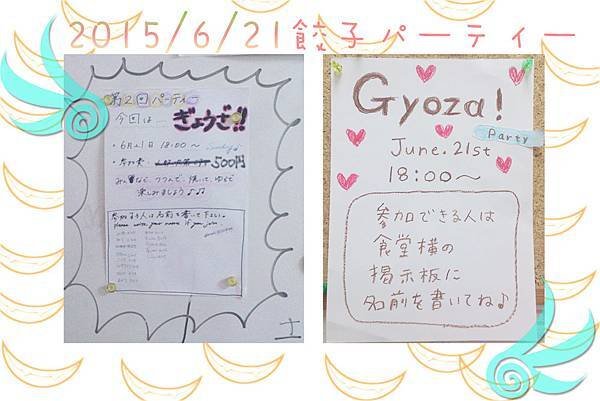 2015/6/21餃子パーティー
第2回パーティー
今回は
ぎょうざ!!
・6月21日 18:00〜 Sunday
・参加費 500円
みんなで、つつんで、焼いて、ゆでて
楽しみましょう♪♫
参加する人は名前を書いて下さい。
please write your name if you join.
土
Gyoza!
Party
June.21st
18:00〜
参加できる人は
食堂横の
掲示板に
名前を書いてね♪